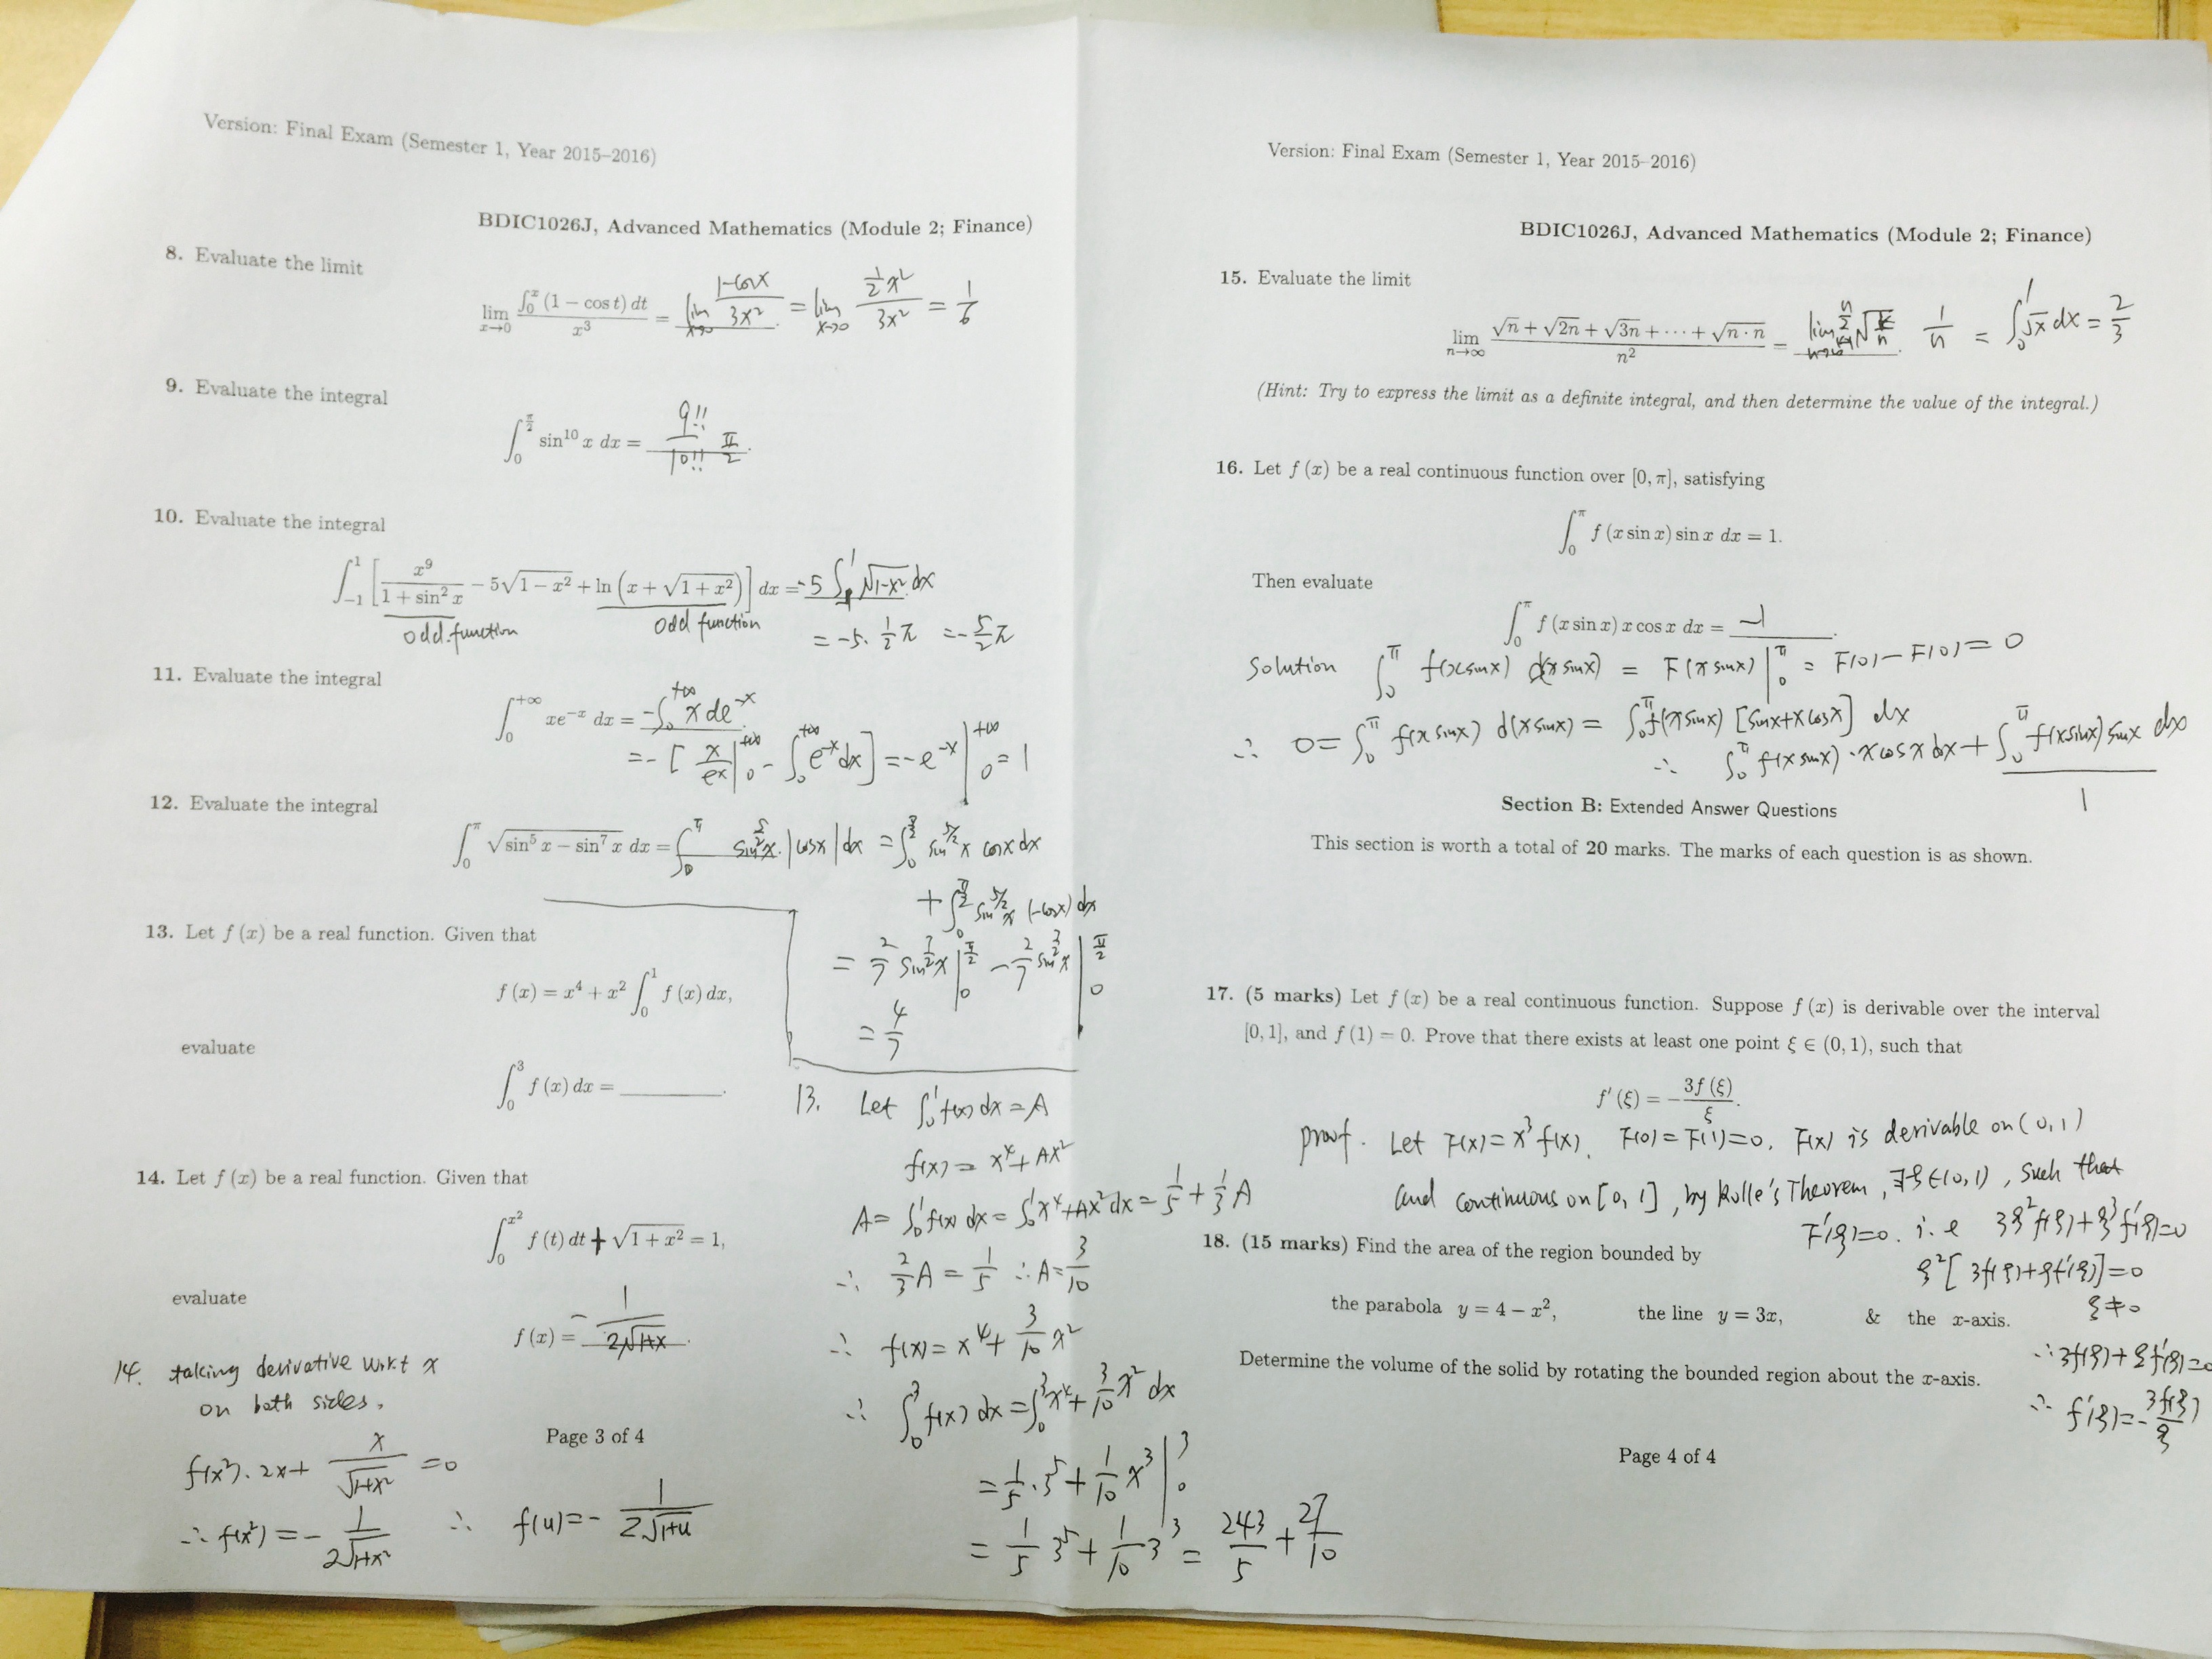 Version: Final Exam (Semester 1, Year 2015–2016)
BDIC1026J, Advanced Mathematics (Module 2; Finance)
8. Evaluate the limit
lim_{x→0} ∫_0^x (1 − cos t) dt / x^3 = lim_{x→0} (1-cosx)/(3x^2) = lim_{x→0} (1/2 x^2)/(3x^2) = 1/6
9. Evaluate the integral
∫_0^{π/2} sin^{10} x dx = 9!!/10!! π/2 .
10. Evaluate the integral
∫_{-1}^1 [ x^9/(1 + sin^2 x) − 5√(1 − x^2) + ln (x + √(1 + x^2)) ] dx = -5 ∫^1 √(1-x^2) dx
odd function odd function = -5 · 1/2 π = -5/2 π
11. Evaluate the integral
∫_0^{+∞} xe^{−x} dx = -∫_0^{+∞} x de^{-x}
= - [ x/e^x |_0^{+∞} - ∫_0^{+∞} e^{-x} dx ] = -e^{-x} |_0^{+∞} = 1
12. Evaluate the integral
∫_0^π √(sin^5 x − sin^7 x) dx = ∫_0^π sin^{5/2} x · |cosx| dx = ∫_0^{π/2} sin^{5/2} x cosx dx
+ ∫_0^{π/2} sin^{5/2} x (-cosx) dx
= 2/7 sin^{7/2} x |_0^{π/2} - 2/7 sin^{7/2} x |_0^{π/2}
= 4/7
13. Let f (x) be a real function. Given that
f (x) = x^4 + x^2 ∫_0^1 f (x) dx,
evaluate
∫_0^3 f (x) dx = ________.
13. Let ∫_0^1 f(x) dx = A
f(x) = x^4 + Ax^2
A = ∫_0^1 f(x) dx = ∫_0^1 x^4 + Ax^2 dx = 1/5 + 1/3 A
∴ 2/3 A = 1/5 ∴ A = 3/10
∴ f(x) = x^4 + 3/10 x^2
∴ ∫_0^3 f(x) dx = ∫_0^3 x^4 + 3/10 x^2 dx
= 1/5 · 3^5 + 1/10 x^3 |_0^3
= 1/5 3^5 + 1/10 3^3 = 243/5 + 27/10
14. Let f (x) be a real function. Given that
∫_0^{x^2} f (t) dt + √(1 + x^2) = 1,
evaluate
f (x) = - 1/(2√(1+x)) .
14. taking derivative w.r.t x
on both sides.
f(x^2) · 2x + x/√(1+x^2) = 0
∴ f(x^2) = - 1/(2√(1+x^2)) ∴ f(u) = - 1/(2√(1+u))
Page 3 of 4
Version: Final Exam (Semester 1, Year 2015–2016)
BDIC1026J, Advanced Mathematics (Module 2; Finance)
15. Evaluate the limit
lim_{n→∞} (√n + √2n + √3n + ··· + √(n · n))/n^2 = lim_{n→∞} Σ_{k=1}^n √(k/n) · 1/n = ∫_0^1 √x dx = 2/3
(Hint: Try to express the limit as a definite integral, and then determine the value of the integral.)
16. Let f (x) be a real continuous function over [0, π], satisfying
∫_0^π f (x sin x) sin x dx = 1.
Then evaluate
∫_0^π f (x sin x) x cos x dx = -1 .
Solution ∫_0^π f(x sinx) d(x sinx) = F(x sinx) |_0^π = F(0) - F(0) = 0
∴ 0 = ∫_0^π f(x sinx) d(x sinx) = ∫_0^π f(x sinx) [sinx + x cosx] dx
∴ ∫_0^π f(x sinx) · x cosx dx + ∫_0^π f(x sinx) sinx dx
1
Section B: Extended Answer Questions
This section is worth a total of 20 marks. The marks of each question is as shown.
17. (5 marks) Let f (x) be a real continuous function. Suppose f (x) is derivable over the interval
[0, 1], and f (1) = 0. Prove that there exists at least one point ξ ∈ (0, 1), such that
f′ (ξ) = − 3f (ξ)/ξ.
proof. Let F(x) = x^3 f(x). F(0) = F(1) = 0, F(x) is derivable on (0,1)
and continuous on [0, 1], by Rolle's Theorem, ∃ξ∈(0,1), such that
F′(ξ)=0. i.e 3ξ^2 f(ξ) + ξ^3 f′(ξ) = 0
ξ^2 [ 3f(ξ) + ξf′(ξ)] = 0
ξ ≠ 0
∴ 3f(ξ) + ξf′(ξ) = 0
∴ f′(ξ) = - 3f(ξ)/ξ
18. (15 marks) Find the area of the region bounded by
the parabola y = 4 − x^2, the line y = 3x, & the x-axis.
Determine the volume of the solid by rotating the bounded region about the x-axis.
Page 4 of 4